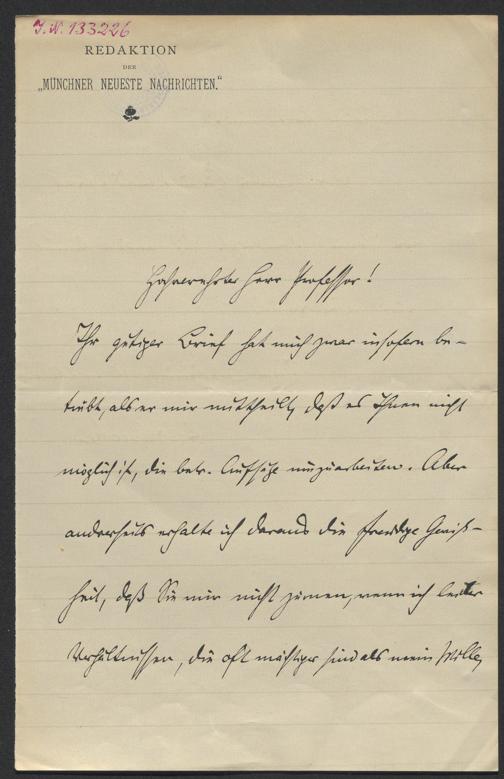 J. N. 133226
REDAKTION
DER
„MÜNCHNER NEUESTE NACHRICHTEN.“
Hochverehrter Herr Professor!
Ihr gütiger Brief hat mich zwar insofern be-
trübt, als er mir mittheilt, daß es Ihnen nicht
möglich ist, die betr. Aufsätze umzuarbeiten. Aber
anderseits erhalte ich daraus die freudige Gewiß-
heit, daß Sie mir nicht zürnen, wenn ich leider
Verhältnissen, die oft mächtiger sind als mein Wille,